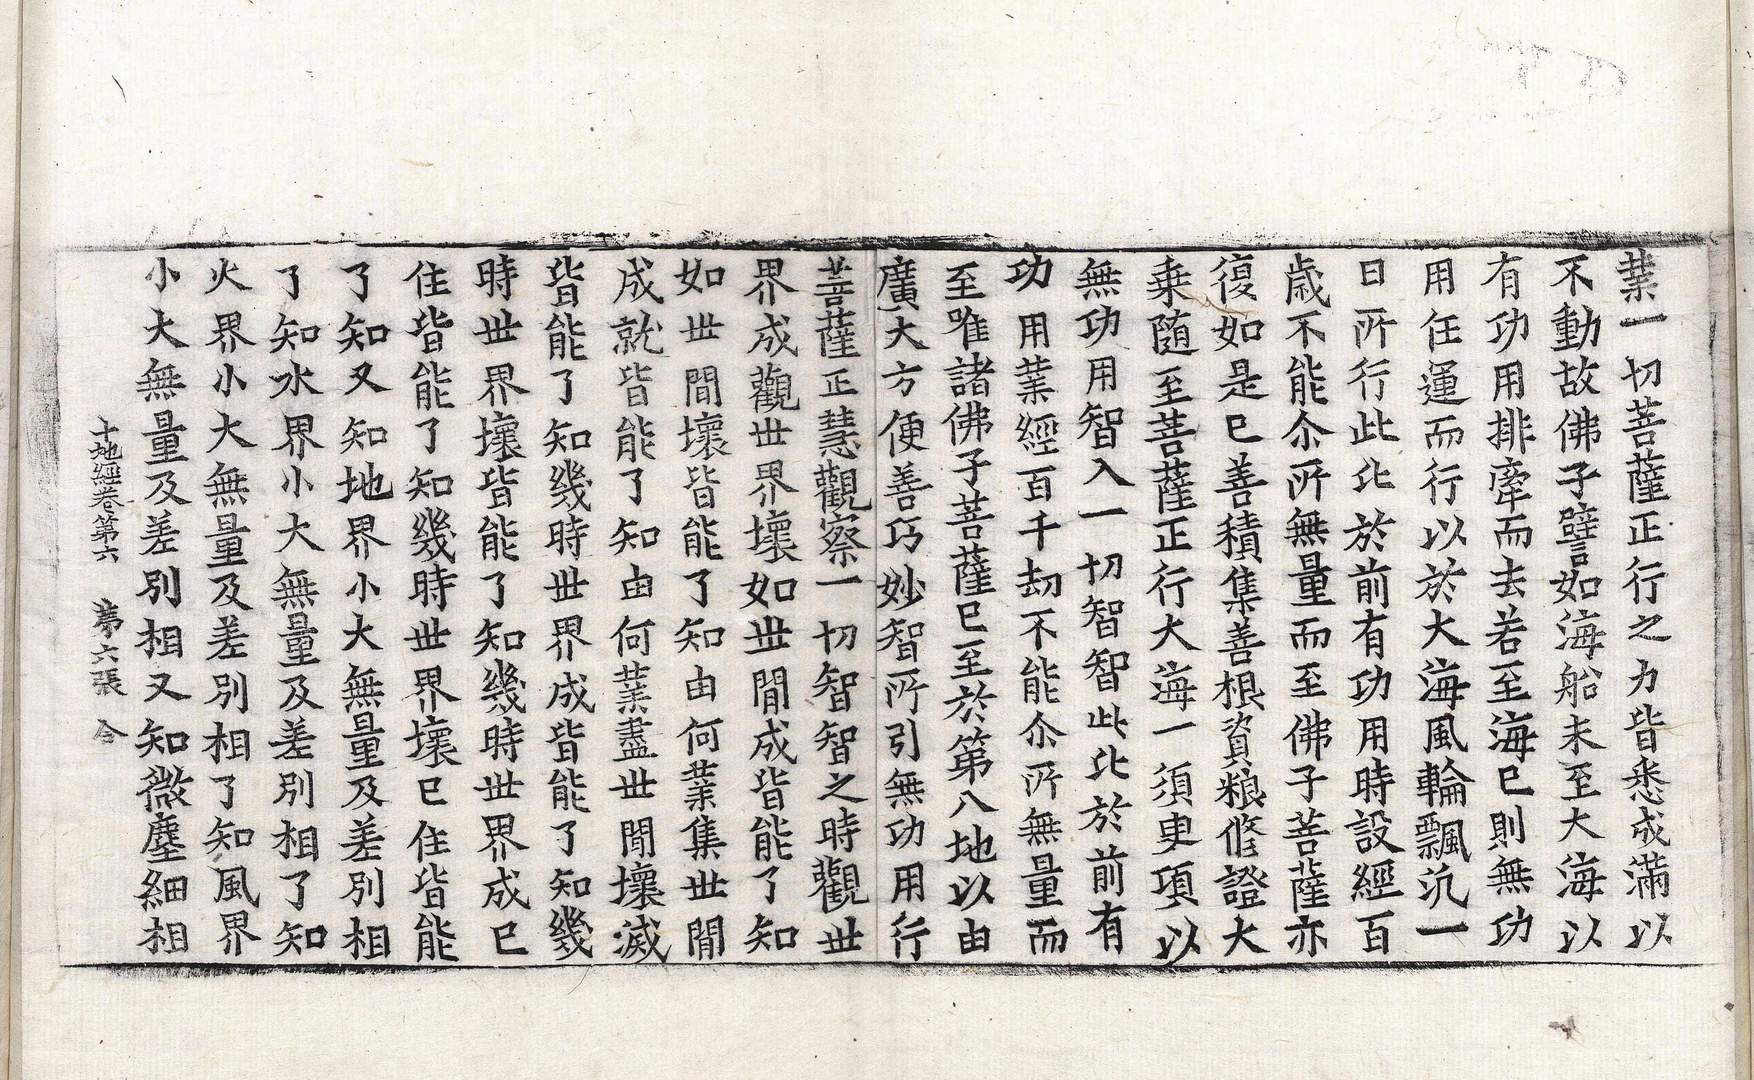 業一切菩薩正行之力皆悉成滿以
不動故佛子譬如海船未至大海以
有功用排牽而去若至海已則無功
用任運而行以於大海風輪飄汎一
日所行此比於前有功用時設經百
歲不能尒所無量而至佛子菩薩亦
復如是已善積集善根資粮修證大
乗隨至菩薩正行大海一須臾項以
無功用智入一切智智此比於前有
功用業經百千劫不能尒所無量而
至唯諸佛子菩薩已至於第八地以由
廣大方便善巧妙智所引無功用行
菩薩正慧觀察一切智智之時觀世
界成觀世界壞如世間成皆能了知
如世間壞皆能了知由何業集世間
成就皆能了知由何業盡世間壞滅
皆能了知幾時世界成皆能了知幾
時世界壞皆能了知幾時世界成已
住皆能了知幾時世界壞已住皆能
了知又知地界小大無量及差別相
了知水界小大無量及差別相了知
火界小大無量及差別相了知風界
小大無量及差別相又知微塵細相
十地經卷第六 第六張 令